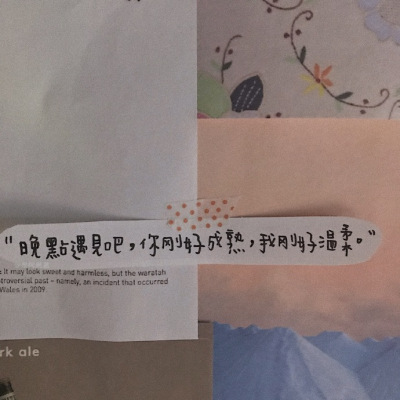 "晚點遇見吧，你剛好成熟，我剛好溫柔。"
it may look sweet and harmless, but the waratah
troversial past – namely, an incident that occurred
Wales in 2009
rk ale